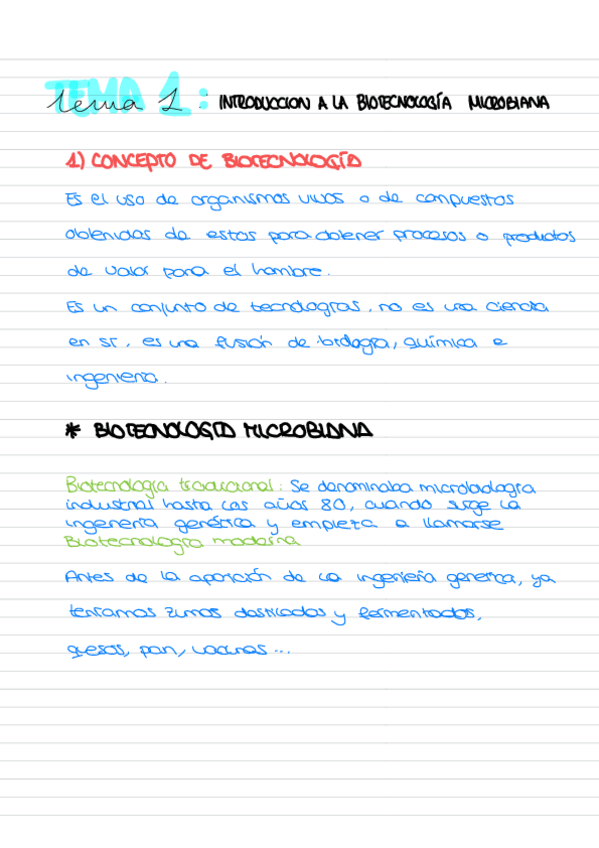 Tema 1: INTRODUCCION A LA BIOTECNOLOGÍA MICROBIANA
1) CONCEPTO DE BIOTECNOLOGÍA
Es el uso de organismos vivos o de compuestos
obtenidos de estos para obtener procesos o productos
de valor para el hombre.
Es un conjunto de tecnologías, no es una ciencia
en sí, es una fusión de biología, química e
ingeniería.
* BIOTECNOLOGIA MICROBIANA
Biotecnología tradicional: Se denominaba microbiología
industrial hasta los años 80, cuando surge la
ingeniería genética y empieza a llamarse
Biotecnología moderna
Antes de la aparición de la ingeniería genética, ya
teníamos zumos destilados y fermentados,
quesos, pan, vacunas...